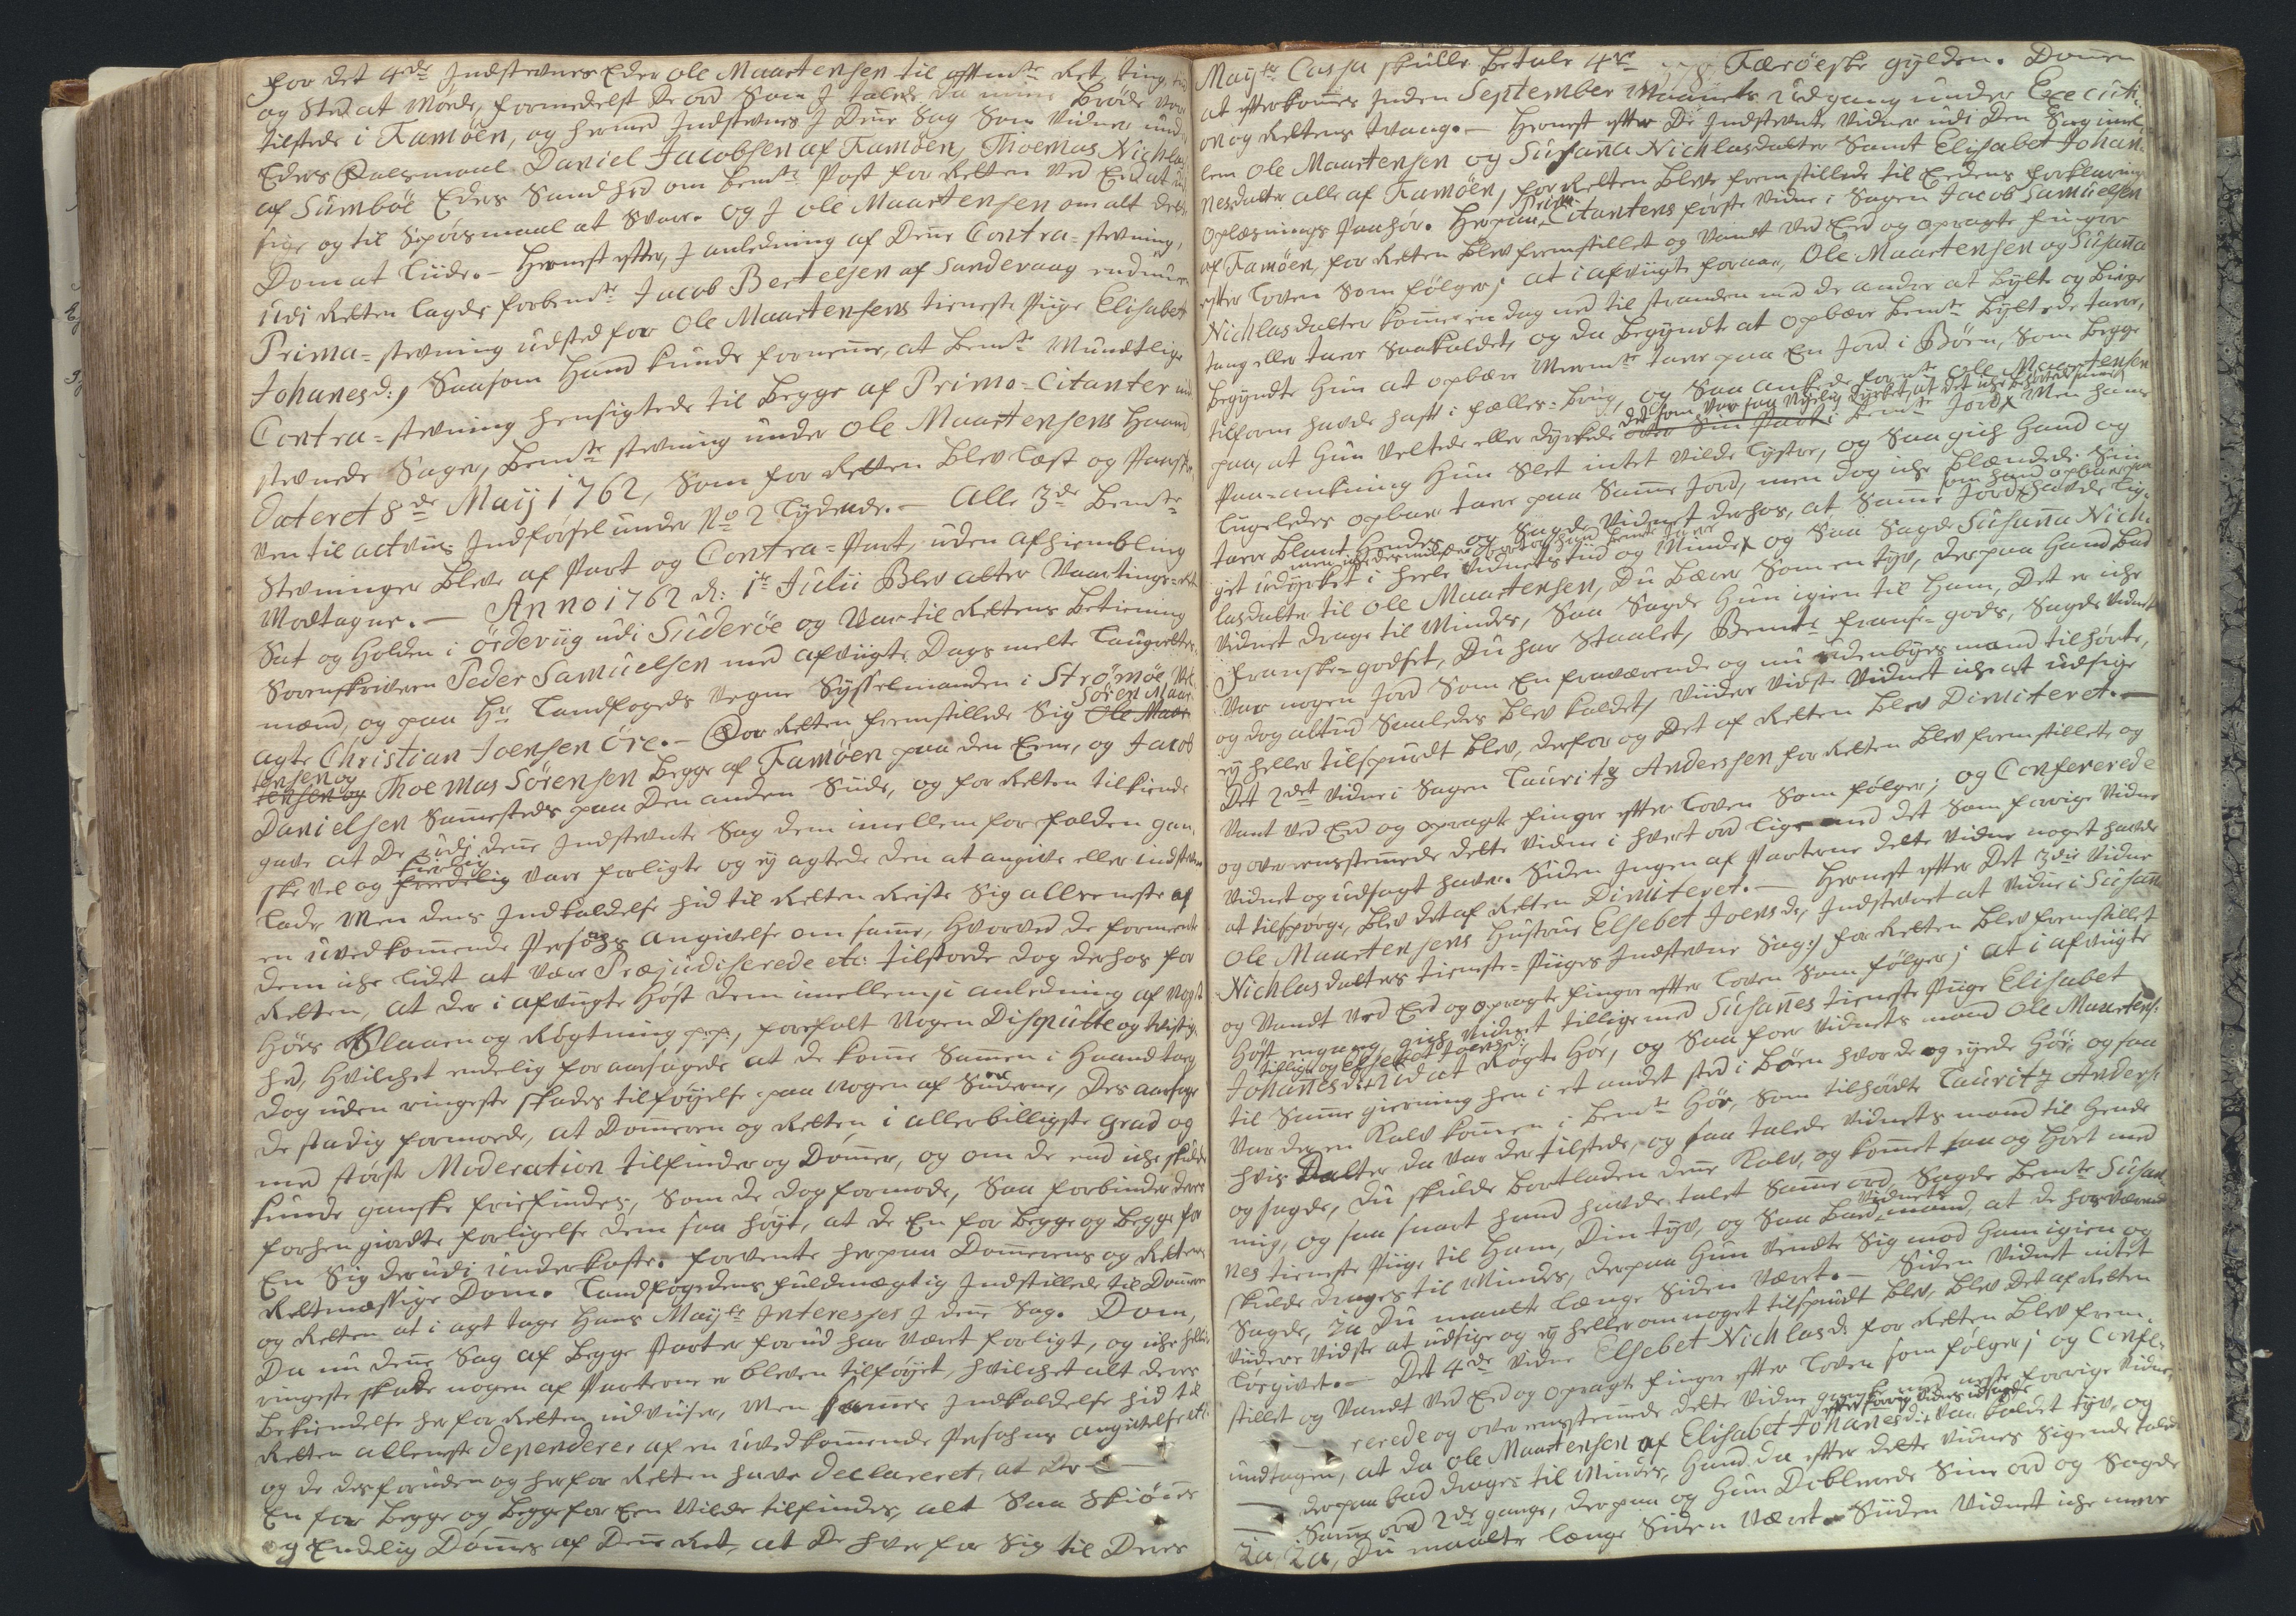 for det 4de Indstevnes Eder Ole Maartensen til ermte Ret, ting, tiid
og Sted at Møde, formedelst de ord Som I talede da mine brøde var
tilstede i Famøen, og hermed Indstevnes I Denne Sag Som Vidner under
Eders Falsmaal Daniel Jacobsen af Famøen, Thoemas Nichlas
af Sumböe Eders Sandhed om bemte Post for Retten Ved Eed at ud
sige og til Spørsmaal at Svare. og I Ole Maartensen om alt dette
Dom at Liide. – Hernest efter, I anledning af Denne Contra-stevning,
udi Retten lagde forbemte Jacob Bertelsen af Sandevaag endnu en
Prima-stevning udsted for Ole Maartensens tieneste Piige Elisabet
Johanesd:, Saasom Hand kunde fornemme, at bemte Mundtlige
Contra-stevning hensigtede til begge af Primo-Citanter ind
stevnede Sager, bemte stevning under Ole Maartensens Haand
dateret 8de Maij 1762, Som for Retten blev læst og Paaskre
ven til actens Indførsel under No 2 lydende. – Alle 3de bemte
Stevninger bleve af Part og Contra-Part, uden afhiembling
Modtagne. – Anno 1762 d: 1te Julii Blev atter Vaartings-ret
Sat og Holden i Ördeviig udi Suderöe og Var til Rettens betiening
Sorenskriveren Peder Samuelsen med afvigte Dags melte Laugrettes
mænd, og paa Hr Landfogeds Vegne Sysselmanden i Strömöe, Vel
agte Christian Joensen Öre. – For Retten fremstillede Sig Ole Maar Sören Maar
tensen og tensen og Thoemas Sörensen begge af Famöen paa den Eene, og Jacob
Danielsen Sammesteds paa Den anden Siide, og for Retten tilkiende
gave at De udj denne Indstevnte Sag dem imellem forefalden gan
ske vel og fredelig vare forligte og ey agtede den at angive eller indstevne
lade Men dens Indkaldelse hid til Retten Reiste Sig alleeneste af
en uvedkommende Persohns angivelse om samme, Hvorved de formeente
dem iche lidet at være Præjudiserede etc: tilstode dog derhos for
Retten, at der i afvigte Høst dem imellem, i anledning af noget
Høes Slaaen og Røgtning p.p., forefalt nogen Dispütte og tvistig
hed, Hvilchet endelig foraarsagede at de komme Sammen i Haandtag
dog uden ringeste skades tilføyelse paa nogen af Siiderne, Des aarsage
de stadig formoede, at Dommeren og Retten i allerbilligste grad og
med størst Moderation tilfinder og Dømmer, og om de end iche skulde
kunde ganske friefindes, Som de dog formode, Saa forbinder deres
forhen giorte forligelse dem saa høyt, at de En for begge og begge for
En Sig derudi underkaste. forvente herpaa Dommerens og Rettens
Retmessige Dom. Landfogedens fuldmegtig Indstillede til Dommeren
og Retten at i agt tage Hans Mayts Interesser I denne Sag. Dom,
Da nu denne Sag af begge Parter forud har været forligt, og iche heller
ringeste skade nogen af Parterne er bleven tilføyet, hvilchet alt deres
bekiendelse her for Retten udviiser, Men Sammes Indkaldelse hid til
Retten alleneste dependerer af en uvedkommende Persohns angivelse etc:
og de desforuden og her for Retten have declareret, at de
En for begge og begge for Een Vilde tilfindes, alt Saa Skiönnes
og Endelig Dömmes af Denne Ret, at De hver for Sig til Deres
Mayts Cassa skulle betale 4re Færöeske gylden. Dommen
at efterkommes Inden September Maaneds Udgang under Executi
on og Rettens tvang. – Hernest efter De Indstevnte Vidner udi Den Sag imel
lem Ole Maartensen og Susanna Nichlasdatter Samt Elisabet Johan
nesdatter alle af Famöen, for Retten bleve fremstillede til Eedens forklaring
Oplæsnings Paahør. Herpaa Prim Citantens første Vidne i Sagen Jacob Samuelsen
af Famöen, for Retten blev fremstillet og Vandt ved Eed og opragte fingre
efter Loven Som følger; at i afvigte foraar, Ole Maartensen og Susanna
Nichlasdatter komme en dag ned til stranden med de andre at bytte og birge
tang eller tarer Saakaldet, og da begyndte at opbære bemte byttede tarer,
begyndte Hun at opbære Meermte tarer paa En Jord i Børn, Som begge
tilforn havde haft i fælles-brug, og Saa ankede formte Ole Maartensen
paa, at Hun veltede eller dyrkede over Sin Part i bemte Jord, Men hans
Paa-ankning Hun Slet intet vilde Lystre, og Saa gich Hand og
Ligeledes opbar tarer paa Samme Jord, men dog iche blendede Sin
tarer blant Hendes og Sagde Vidnet derhos, at Samme Jord havde lig
get udyrket i heele Vidnets tiid og Minde, og Saa Sagde Susanna Nich
lasdatter til Ole Maartensen, Du bærer Som en tyv, derpaa Hand bad
Vidnet drage til Minde, Saa Sagde Hun igien til Ham, Det er iche
Franske-godset, Du har Staalet, Bemte franse-gods, Sagde Vidnet
Var nogen Jord Som En fraværende og nu udenbyes mand tilhørte,
og dog altiid Saaledes blev kaldet, Viidere vidste Vidnet iche at udsige
ey heller tilspurdt blev, derfor og Det af Retten blev Dimiteret. –
Det 2det Vidne i Sagen Lauritz Anderssen for Retten blev fremstillet og
Vant ved Eed og opragte fingre efter Loven Som følger; og Confererede
og overeensstemmede dette Vidne i hvert ord lige med det Som forrige Vidne
Vidnet og udsagt haver. Siden Ingen af Parterne dette Vidne noget havde
at tilspørge, blev det af Retten Dimiteret. – Hernest efter Det 3die Vidne
Ole Maartensens Hustrue Elsebet Joensd:, Indstevnet at Vidne i Susanna
Nichlasdatters tieneste-Piiges Indstevnte Sag:/ for Retten blev fremstillet
og Vandt ved Eed og opragte fingre efter Loven Som følger; at i afvigte
Høst engang, gich Vidnet tillige med Susanes tieneste Piige Elisabet
Johanesd: ud at Røgte Høe, og Saa foer Vidnets mand Ole Maartens:
til Samme gierning hen i et andet sted i börn hvor de og eyede Høe, og saa
var der en Kalv kommen i bemte Høe, Som tilhørte Lauritz Anders:
hvis Datter da var der tilstede, og saa talede Vidnets mand til Hende
og sagde, Du skulde bortladen denne Kalv, og kommet saa og Hort med
mig, og saa snart hand havde talet Samme ord, Sagde bemte Susan
nes tieneste Piige til Ham, Din tyv, og Saa bad Vidnets mand, at de hosværende
skulde drages til Minde, derpaa Hun vendte Sig mod Ham igien og
Sagde, Ja Du maatte længe Siden Været. – Siden Vidnet intet
Viidere vidste at udsige og ey heller om noget tilspurdt blev, blev det af Retten
Løsgivet. – Det 4de Vidne Elsebet Nichlasd: for Retten blev frem
stillet og Vandt ved Eed og opragte fingre efter Loven som følger; og Confe
rerede og overeensstemmede dette Vidne ganske med neste forrige Vidne,
undtagen, at da Ole Maartensen af Elisabet Johanesd: var kaldet tyv, og
derpaa bad drages til Minde, Hand da efter dette Vidnes Sigende talede
Samme ord 2de gange, derpaa og Hun Doblerede Sine ord og Sagde
Ja, Ja, Du maatte længe Siden Været. Siiden Vidnet iche meere